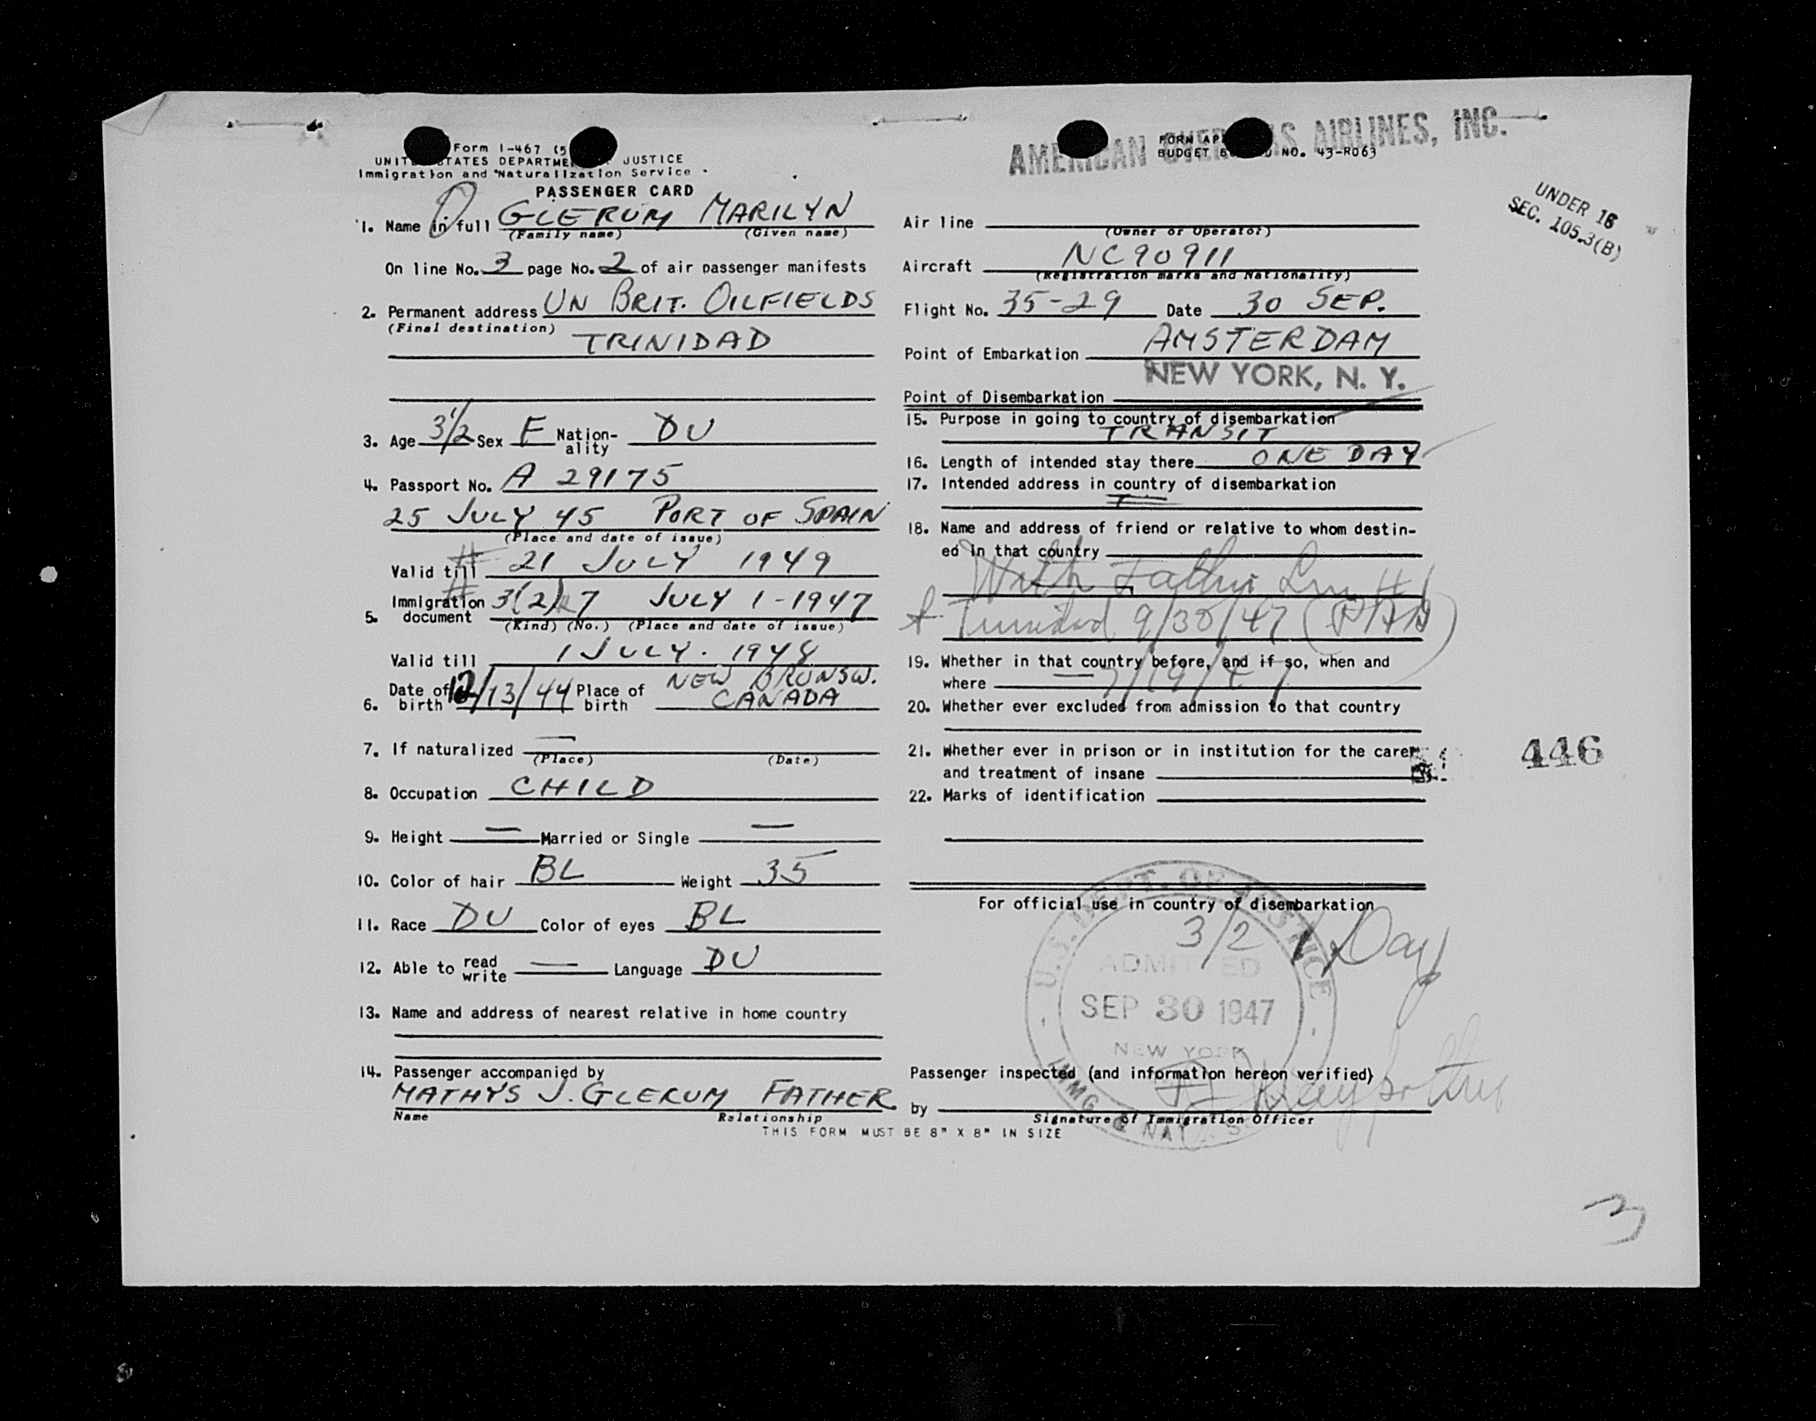 AMERICAN OVERSEAS AIRLINES, INC.
Form I-467 (5
UNITED STATES DEPARTMENT OF JUSTICE
Immigration and Naturalization Service
PASSENGER CARD
1. Name in full GLERUM MARILYN
(Family name) (Given name)
On line No. 3 page No. 2 of air passenger manifests
2. Permanent address UN BRIT. OILFIELDS
(Final destination)
TRINIDAD
3. Age 3 1/2 Sex F Nationality DU
4. Passport No. A 29175
25 JULY 45 PORT OF SPAIN
(Place and date of issue)
Valid till 21 JULY 1949
5. Immigration document 3(2) 7 JULY 1-1947
(Kind) (No.) (Place and date of issue)
Valid till 1 JULY. 1948
6. Date of birth 12/13/44 Place of birth NEW BRUNSW. CANADA
7. If naturalized —
(Place) (Date)
8. Occupation CHILD
9. Height — Married or Single —
10. Color of hair BL Weight 35
11. Race DU Color of eyes BL
12. Able to read write — Language DU
13. Name and address of nearest relative in home country
14. Passenger accompanied by
MATHYS J. GLERUM FATHER
Name Relationship
THIS FORM MUST BE 8" X 8" IN SIZE
FORM AP
BUDGET B NO. 43-R063
UNDER 16
SEC. 105.3(B)
Air line
(Owner or Operator)
Aircraft NC90911
(Registration marks and Nationality)
Flight No. 35-29 Date 30 SEP.
Point of Embarkation AMSTERDAM
NEW YORK, N. Y.
Point of Disembarkation
15. Purpose in going to country of disembarkation
TRANSIT
16. Length of intended stay there ONE DAY
17. Intended address in country of disembarkation
18. Name and address of friend or relative to whom destined in that country
With Father
Trinidad 9/30/47 (PAA)
19. Whether in that country before, and if so, when and
where — 7/19/47
20. Whether ever excluded from admission to that country
21. Whether ever in prison or in institution for the care
and treatment of insane
446
22. Marks of identification
For official use in country of disembarkation
3/2 1 Day
U.S. DEPT. OF JUSTICE
ADMITTED
SEP 30 1947
NEW YORK
IMMIG & NAT. S
Passenger inspected (and information hereon verified)
by
Signature of Immigration Officer
3